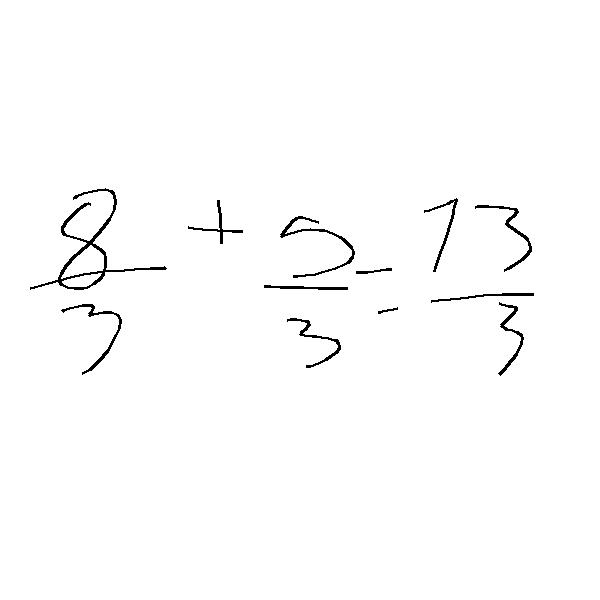 8/3 + 5/3 = 13/3